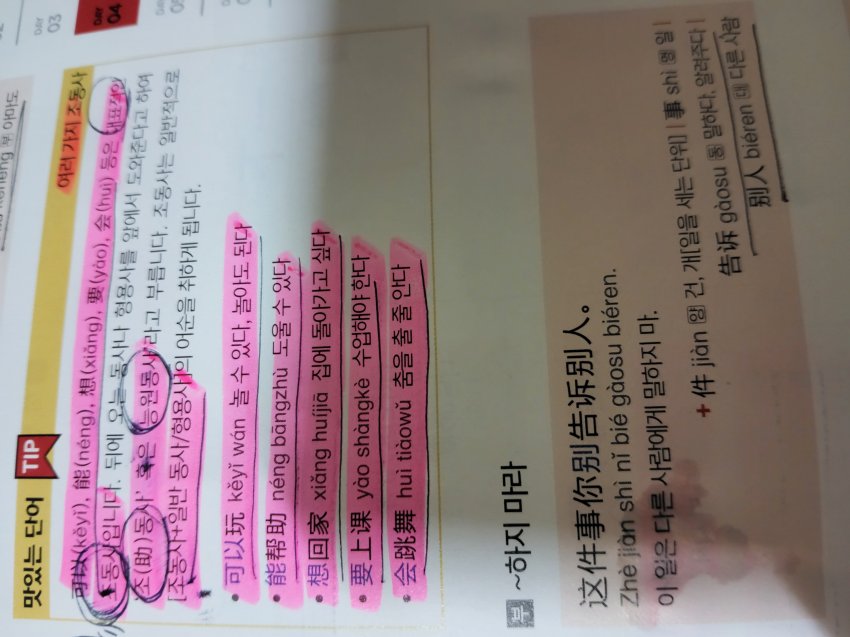 DAY
03
DAY
04
아마도
맛있는 단어 TIP 여러 가지 조동사
可以(kěyǐ), 能(néng), 想(xiǎng), 要(yào), 会(huì) 등은 대표적인
조동사입니다. 뒤에 오는 동사나 형용사를 앞에서 도와준다고 하여
'조(助)동사' 혹은 '능원동사'라고 부릅니다. 조동사는 일반적으로
[조동사+일반 동사/형용사]의 어순을 취하게 됩니다.
• 可以玩 kěyǐ wán 놀 수 있다, 놀아도 된다
• 能帮助 néng bāngzhù 도울 수 있다
• 想回家 xiǎng huíjiā 집에 돌아가고 싶다
• 要上课 yào shàngkè 수업해야 한다
• 会跳舞 huì tiàowǔ 춤을 출 줄 안다
부 ~하지 마라
这件事你别告诉别人。
Zhè jiàn shì nǐ bié gàosu biéren.
이 일은 다른 사람에게 말하지 마.
+ 件 jiàn 양 건, 개[일을 세는 단위] | 事 shì 명 일 |
告诉 gàosu 동 말하다, 알려주다 |
别人 biéren 대 다른 사람